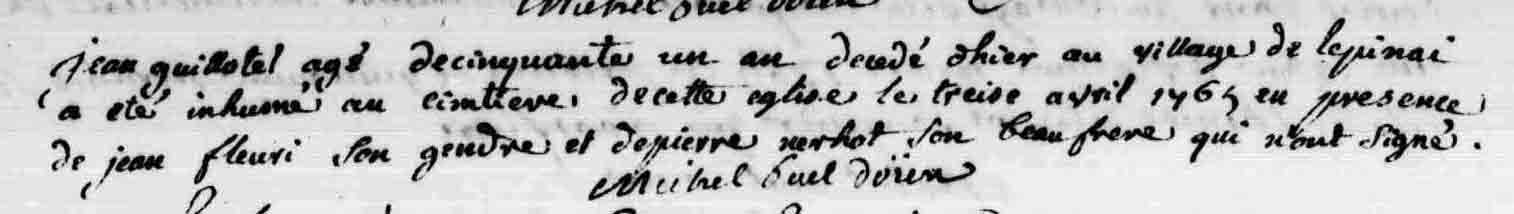 Michel buel doïen
jean guillotel agé decinquante un an decedé dhier au village de lepinai
a eté inhumé au cimtiere decette eglise le treise avril 1765 en presence
de jean fleuri son gendre et depierre nerhot son beaufrere qui n'ont signé.
Michel buel doïen